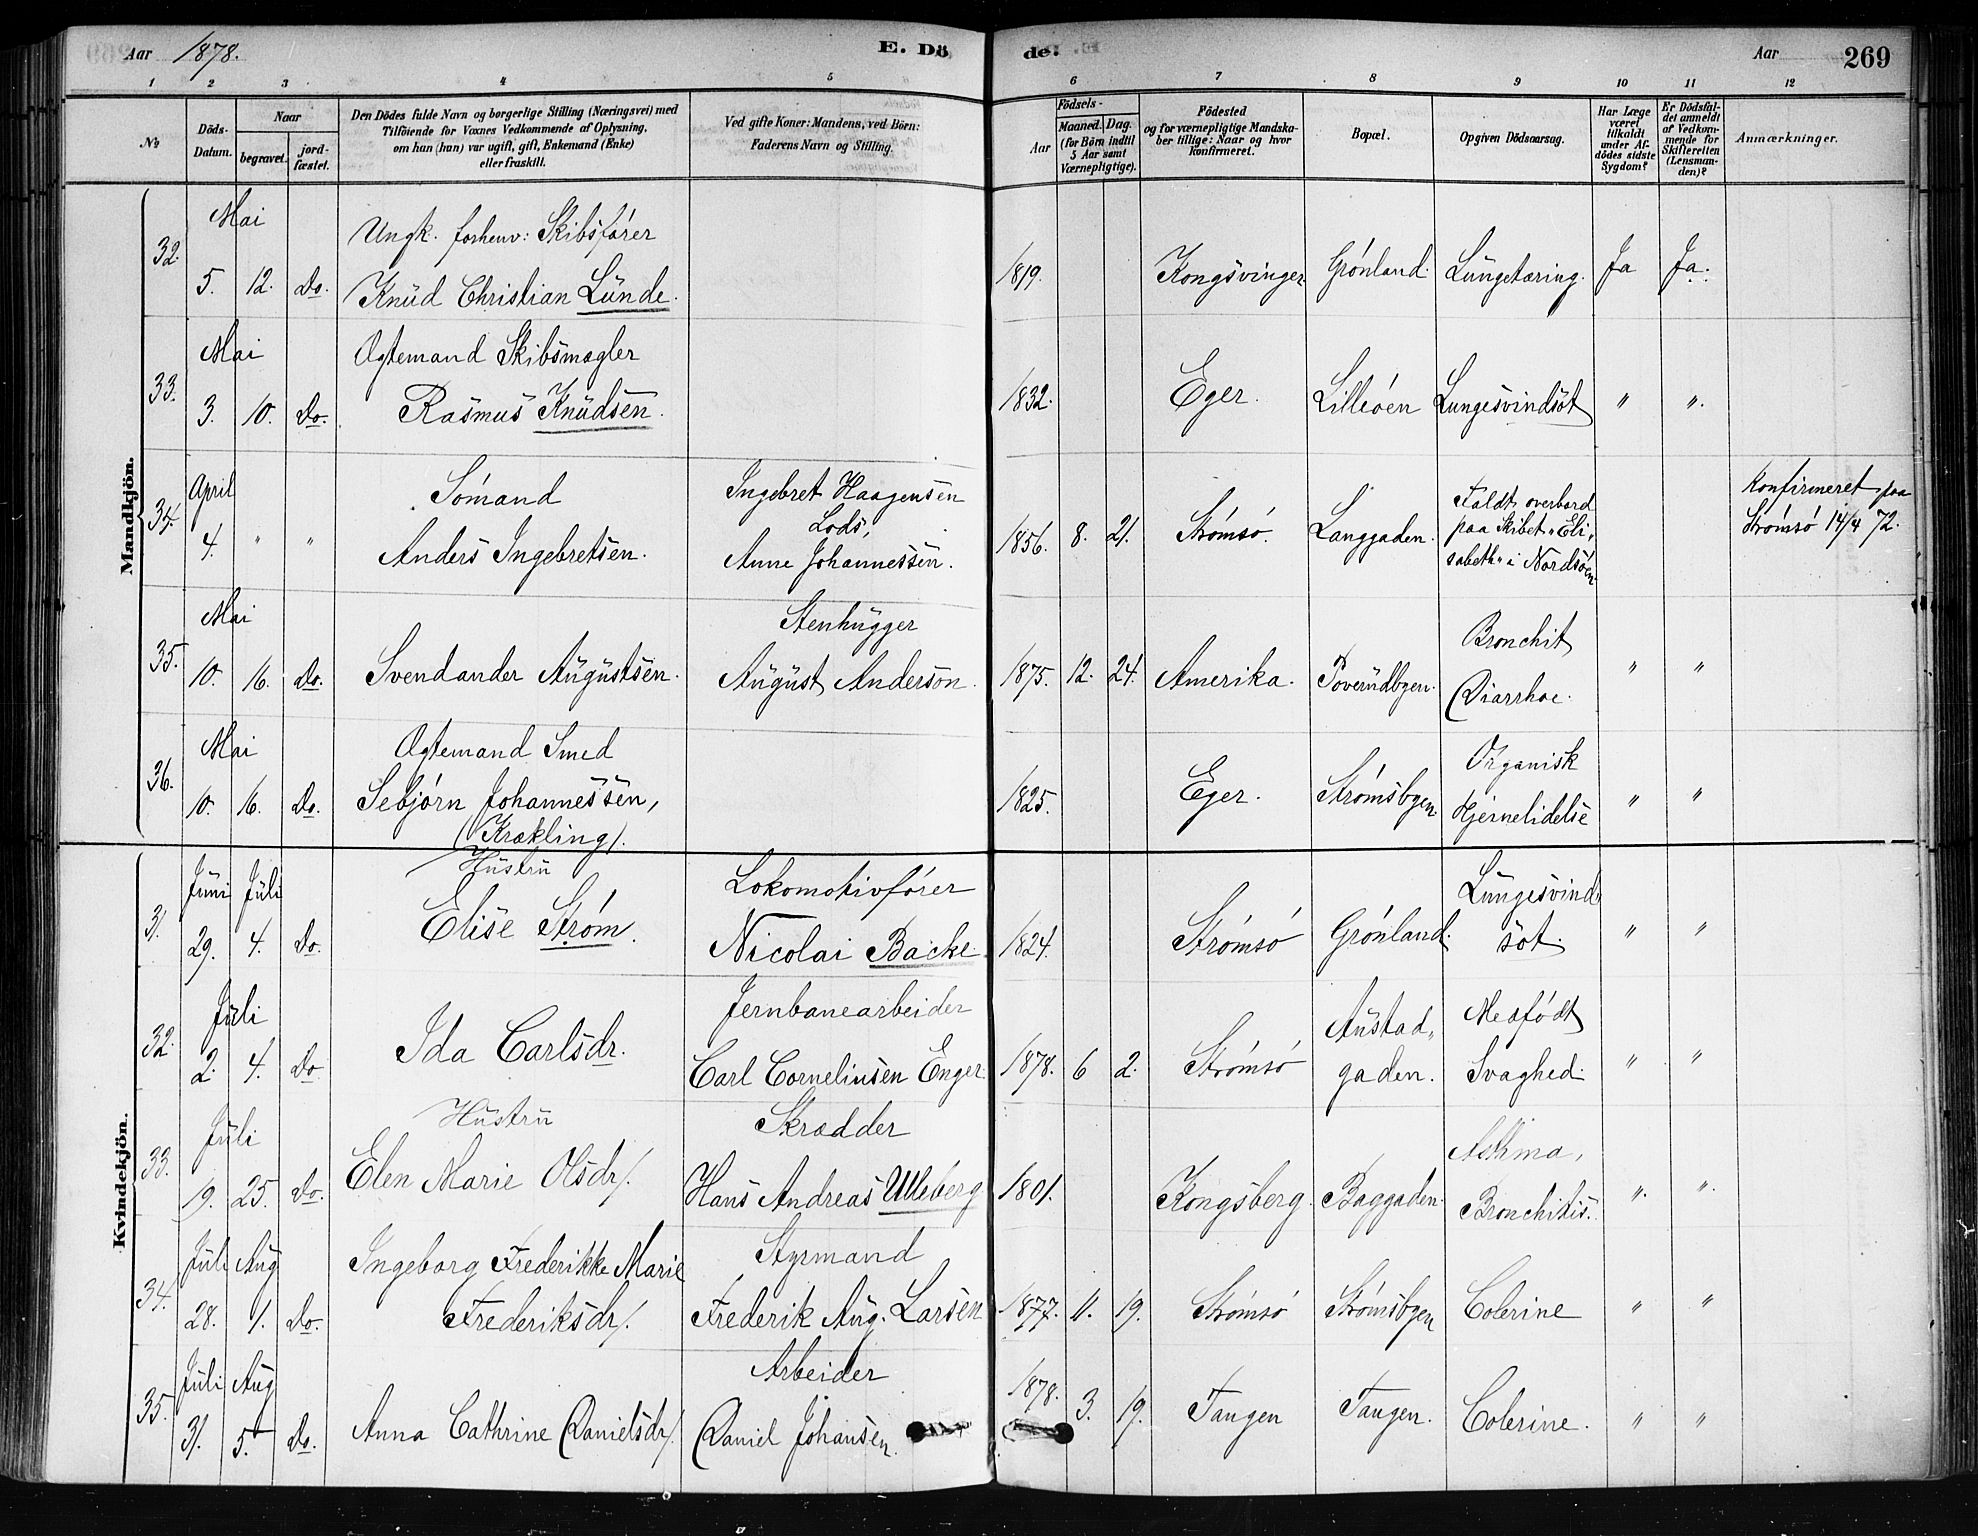 Aar 1878. E. Dö de. Aar 269
1 2 3 4 5 6 7 8 9 10 11 12
No Döds-Datum. Naar begravet. jord-fæstet. Den Dödes fulde Navn og borgerlige Stilling (Næringsvei) med Tilföiende for Voxnes Vedkommende af Oplysning, om han (hun) var ugift, gift, Enkemand (Enke) eller fraskilt. Ved gifte Koner: Mandens, ved Börn: Faderens Navn og Stilling. Födsels- Aar Maaned. Dag. (for Börn indtil 5 Aar samt Værnepligtige). Födested og for værnepligtige Mandskaber tillige: Naar og hvor konfirmeret. Bopæl. Opgiven Dödsaarsag. Har Læge været tilkaldt under Afdödes sidste Sygdom? Er Dödsfaldet anmeldt af Vedkommende for Skifteretten (Lensmanden)? Anmærkninger.
Mandkjön.
Mai Ungk. forhenv: Skibsfører
32. 5. 12. Do. Knud Christian Lunde. 1819. Kongsvinger Grønland. Lungetæring. Ja Ja.
Mai Ægtemand Skibsmægler
33. 3. 10. Do. Rasmus Knudsen. 1832. Eger. Lilleøen Lungesvindsot " ".
April Sømand Ingebret Haagensen Faldt overbord Konfirmeret paa
34. Lods, paa Skibet "Eli- Strømsø 14/4 72.
4. " " Anders Ingebretsen. Anne Johannessen. 1856. 8. 21. Strømsø. Langgaden. sabeth" i Nordsøen
Mai Stenhugger Bronchit
35. 10. 16. Do. Svendander Augustsen. August Anderson. 1875. 12. 24. Amerika. Poverudbgen. Diarrhoe. " "
Mai Ægtemand Smed Organisk
36. 10. 16. Do. Sebjørn Johannessen, 1825. Eger. Strømsbgen Hjernelidelse " "
(Krækling).
Kvindekjön.
Juni Juli Hustru Lokomotivfører Lungesvind-
31. 29. 4. Do. Elise Strøm. Nicolai Backe. 1824. Strømsø Grønland. sot. " "
Juli Jernbanearbeider Austad- Medfødt
32. 2. 4. Do Ida Carlsdr. Carl Corneliusen Enger. 1878. 6 2. Strømsø gaden. Svaghed. " "
Juli Hustru Skrædder Asthma,
33. 19. 25. Do. Elen Marie Olsdr/. Hans Andreas Ulleberg 1801. Kongsberg. Baggaden. Bronchitis. ". ".
Juli Aug Ingeborg Frederikke Marie Styrmand
34. 28. 1. Do. Frederiksdr/. Frederik Aug. Larsen 1877. 11. 19. Strømsø Strømsbgen Colerine " "
Juli Aug Arbeider
35. 31. 5. Do. Anna Cathrine Danielsdr/. Daniel Johansen. 1878. 3. 19. Tangen Tangen. Colerine. " "